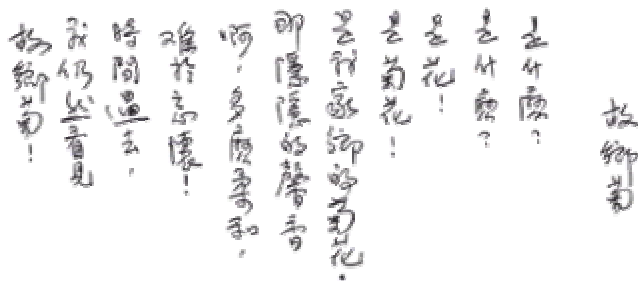 故鄉菊
是什麼?
是什麼?
是花!
是菊花!
是我家鄉的菊花.
那隱隱的馨香
啊,多麼柔和,
難於忘懷!
時間過去,
我仍然看見
故鄉菊!